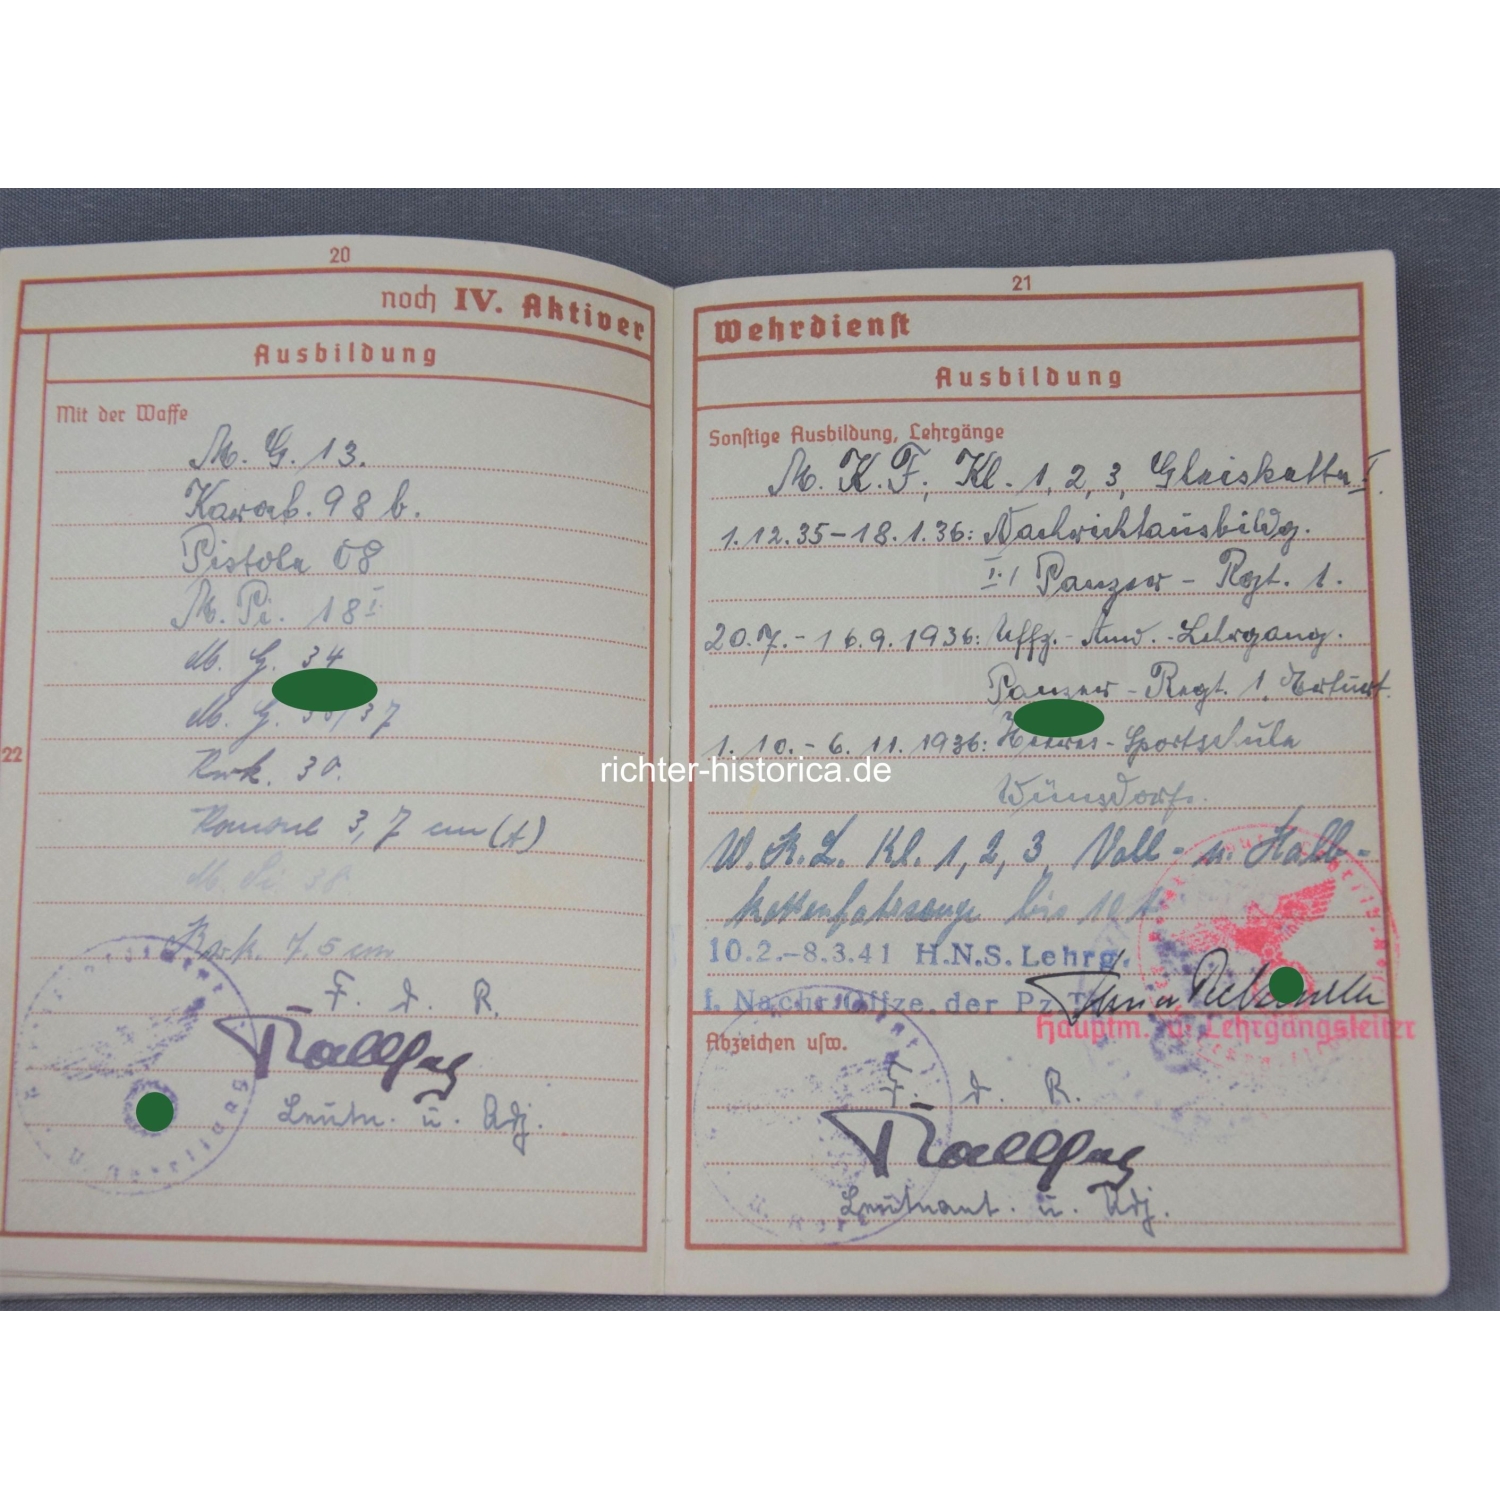 20
noch IV. Aktiver
Ausbildung
Mit der Waffe
M. G. 13.
Karab. 98 b.
Pistole 08
M. Pi. 18 I
M. G. 34
M. G. 37
Kwk. 30.
Kanone 3,7 cm (t)
M. Pi. 38
Kwk. 7.5 cm
F. d. R.
Leutn. u. Adj.
22
21
Wehrdienst
Ausbildung
Sonstige Ausbildung, Lehrgänge
M. K. F., Kl. 1, 2, 3, Gleiskette I.
1.12.35–18.1.36: Nachrichtausbildg.
I./ Panzer - Rgt. 1.
20.7.–16.9.1936: Uffz.-Anw.-Lehrgang.
Panzer-Regt. 1, Erfurt.
1.10.–6.11.1936: Heeres-Sportschule
Wünsdorf.
W. K. L. Kl. 1, 2, 3, Voll- u. Halb-
kettenfahrzeuge bis 10 t
10.2.-8.3.41 H.N.S. Lehrg.
f. Nachr. Offze. der Pz.
Hauptm. u. Lehrgangsleiter
Abzeichen usw.
F. d. R.
Leutnant. u. Adj.
richter-historica.de